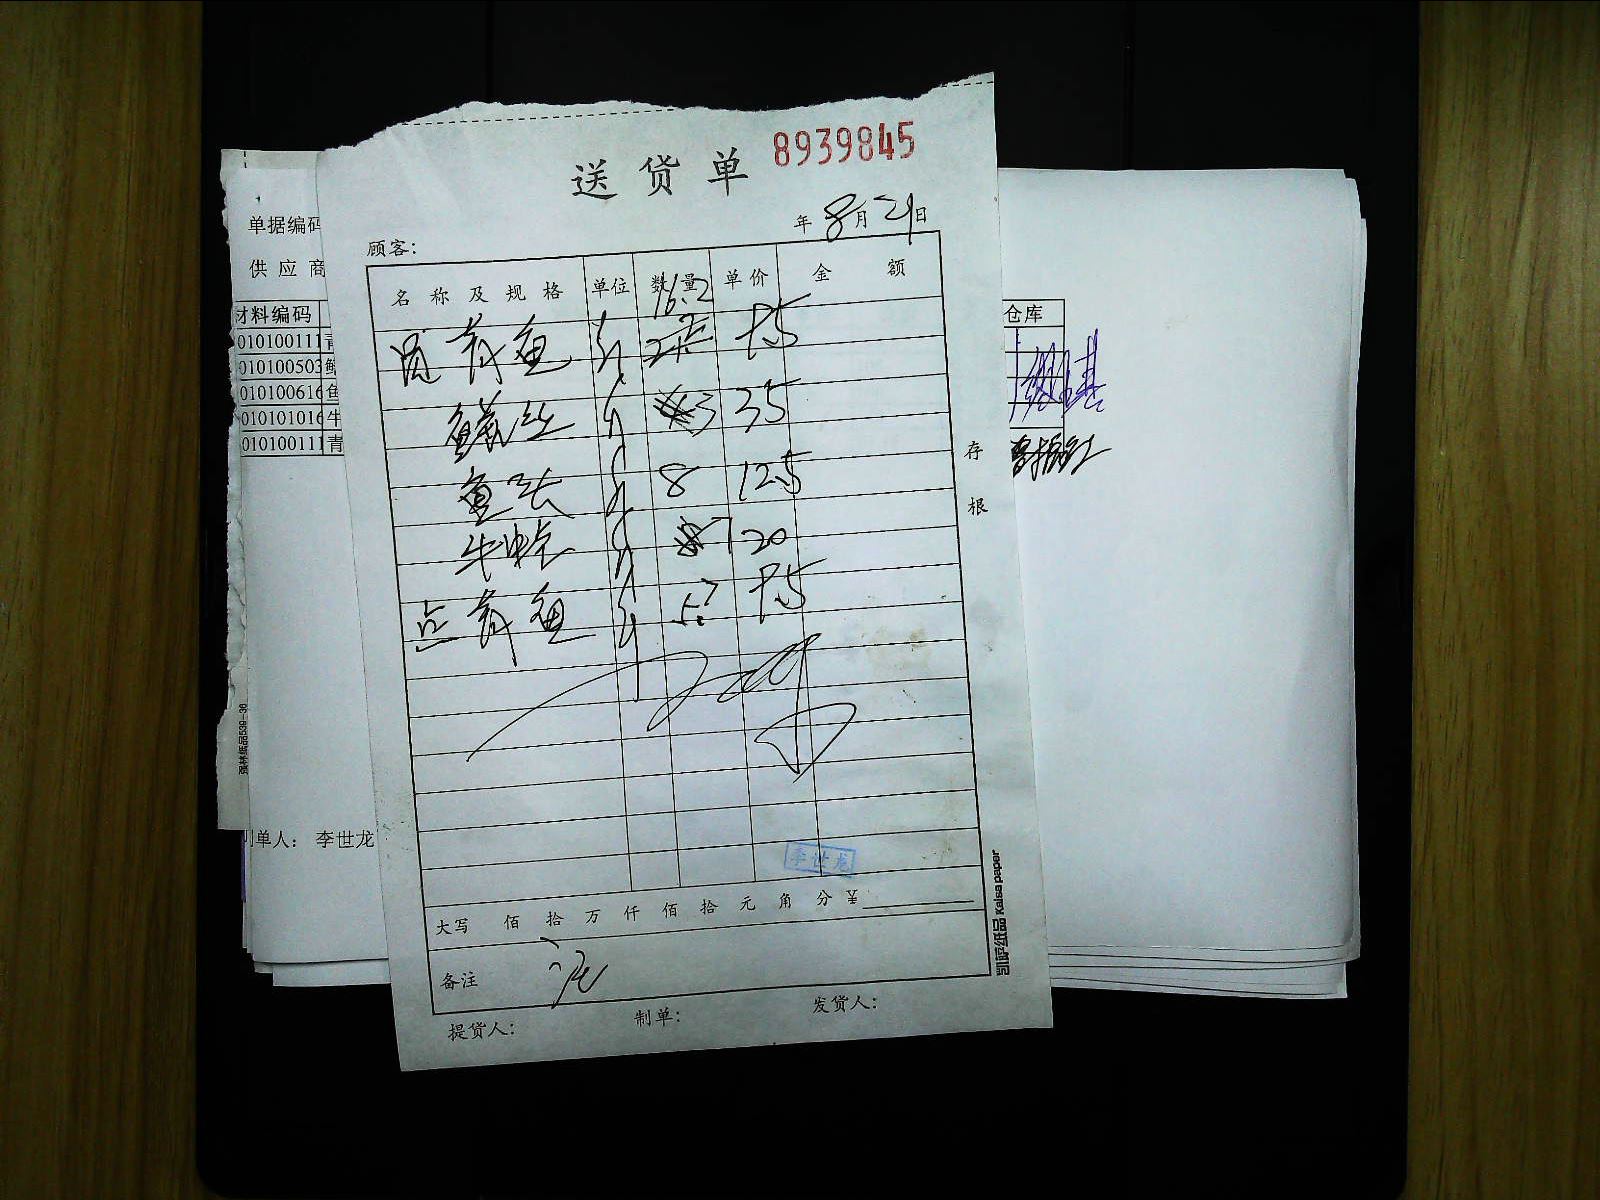 送货单 8939845
年 8月21日
顾客:
名称及规格 单位 数量 单价 金额
16.2
青鱼 斤 7.5
鳝丝 斤 3 35
鱼 斤 8 12.5
牛 斤 7 20
点青鱼 斤 5.7 7.5
李世龙
大写 佰 拾 万 仟 佰 拾 元 角 分 ¥
备注
提货人: 制单: 发货人:
存根
凯萨纸品 Kaisa paper
单据编码
供应商
材料编码
010100111 青
010100503 鳝
010100616 鱼
010101016 牛
010100111 青
制单人: 李世龙
仓库